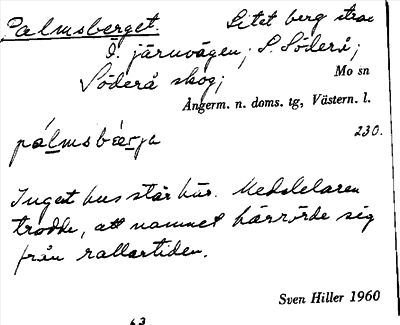 Palmsberget. Litet berg strax
Ö. järnvägen; S. Söderå;
Söderå skog; Mo sn
Ångerm. n. doms. tg, Västern. l.
pálmsbærja 230.
Inget hus står här. Meddelaren
trodde, att namnet härrörde sig
från rallartiden.
Sven Hiller 1960